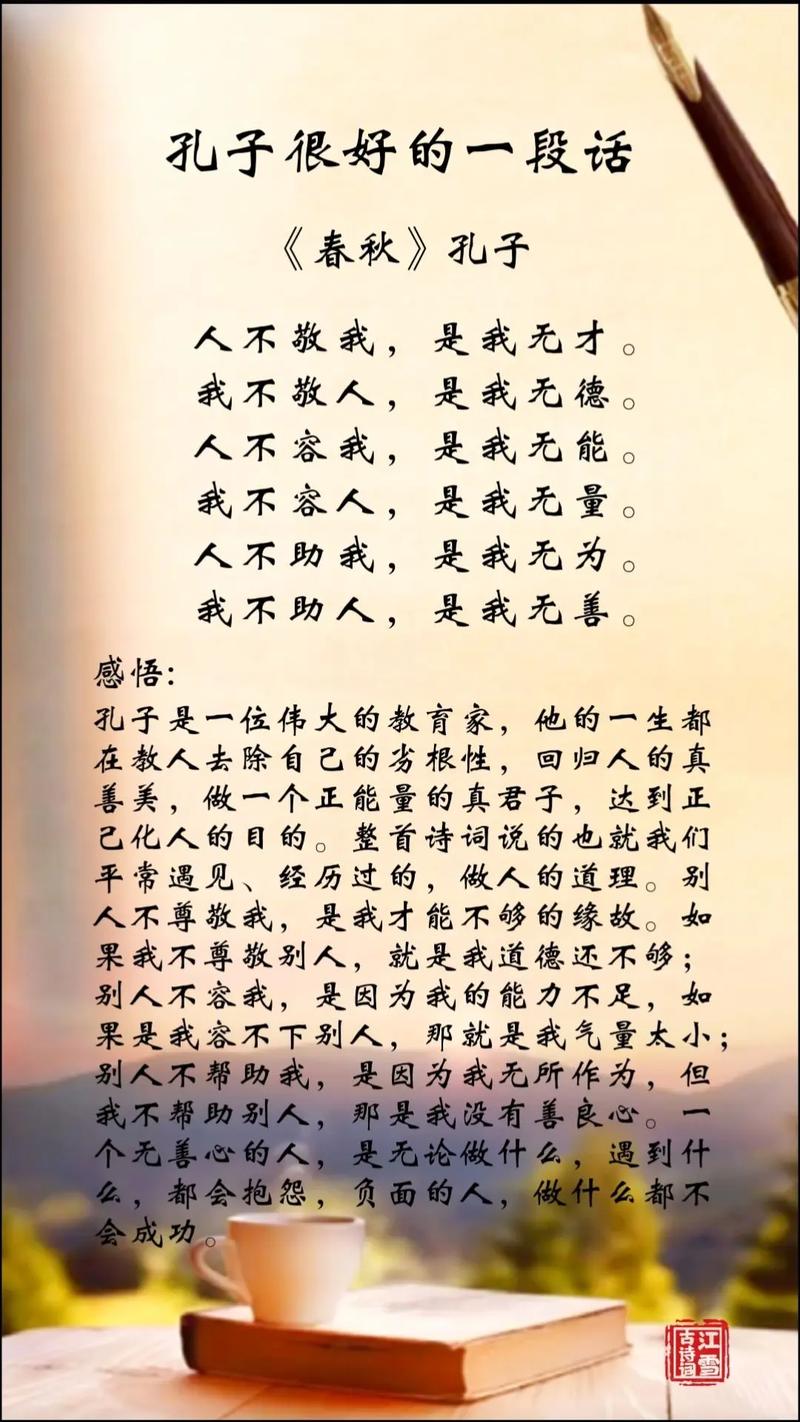 孔子很好的一段话
《春秋》孔子
人不敬我，是我无才。
我不敬人，是我无德。
人不容我，是我无能。
我不容人，是我无量。
人不助我，是我无为。
我不助人，是我无善。
感悟：
孔子是一位伟大的教育家，他的一生都
在教人去除自己的劣根性，回归人的真
善美，做一个正能量的真君子，达到正
己化人的目的。整首诗词说的也就我们
平常遇见、经历过的，做人的道理。别
人不尊敬我，是我才能不够的缘故。如
果我不尊敬别人，就是我道德还不够；
别人不容我，是因为我的能力不足，如
果是我容不下别人，那就是我气量太小；
别人不帮助我，是因为我无所作为，但
我不帮助别人，那是我没有善良心。一
个无善心的人，是无论做什么，遇到什
么，都会抱怨，负面的人，做什么都不
会成功。
江雪
古诗词